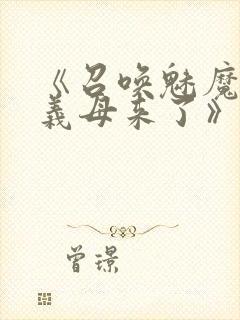 《召唤魅魔
義母来了》
曾璟